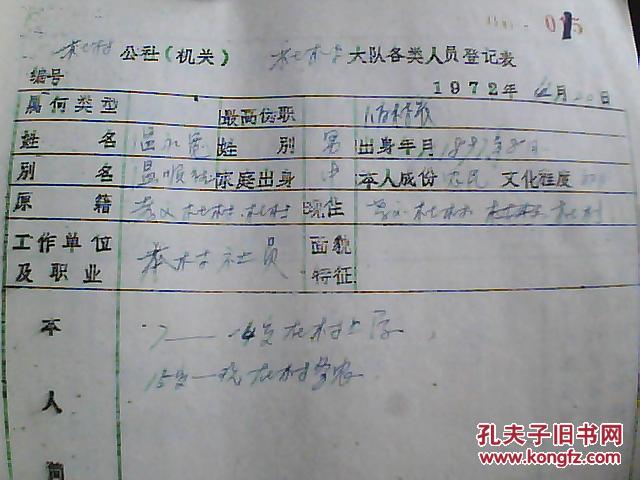 015
杜村 公社（机关） 杜村 大队各类人员登记表
编号 1972年4月20日
属何类型 最高伪职
姓名 温永宽 姓别 男 出身年月 1897年8月
别名 温顺 家庭出身 中 本人成份 农民 文化程度
原籍 孝义 杜村 杜村 现住 孝义 杜村 杜村
工作单位及职业 本村社员 面貌特征
本人简
7——14岁在村上学
15岁—现在村务农
孔夫子旧书网
www.kongfz.com